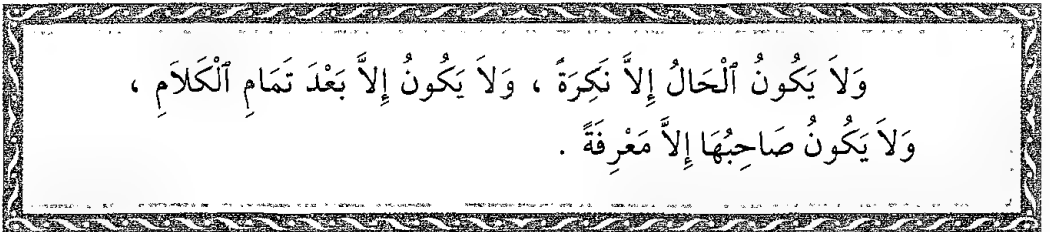 وَلاَ يَكُونُ ٱلْحَالُ إِلاَّ نَكِرَةً ، وَلاَ يَكُونُ إِلاَّ بَعْدَ تَمَامِ ٱلْكَلاَمِ ،
وَلاَ يَكُونُ صَاحِبُهَا إِلاَّ مَعْرِفَةً .